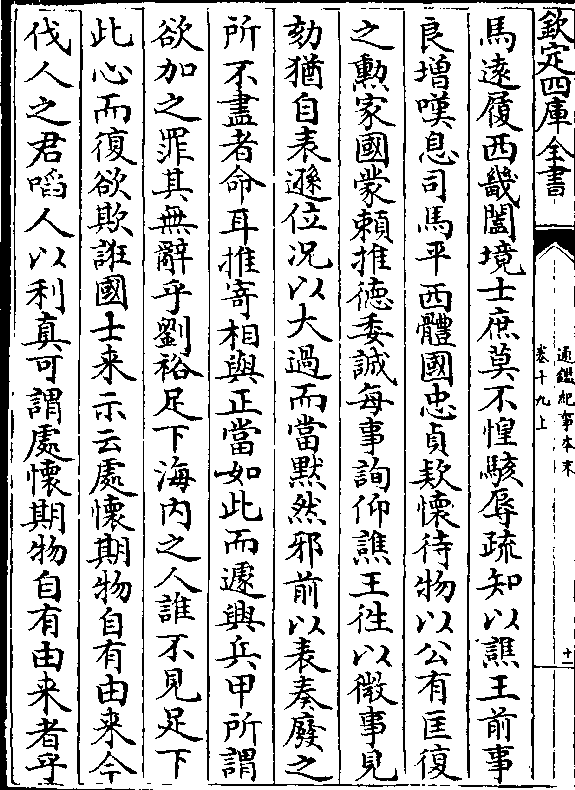 欽定四庫全書
通鑑紀事本末
卷十九上
十一
馬遠履西畿闔境士庶莫不惶駭辱疏知以譙王前事
良增嘆息司馬平西體國忠貞欵懷待物以公有匡復
之勲家國蒙賴推德委誠每事詢仰譙王徃以微事見
劾猶自表遜位况以大過而當黙然邪前以表奏廢之
所不盡者命耳推寄相與正當如此而遽興兵甲所謂
欲加之罪其無辭乎劉裕足下海内之人誰不見足下
此心而復欲欺誑國士来示云處懷期物自有由来今
伐人之君㗖人以利真可謂處懷期物自有由来者乎